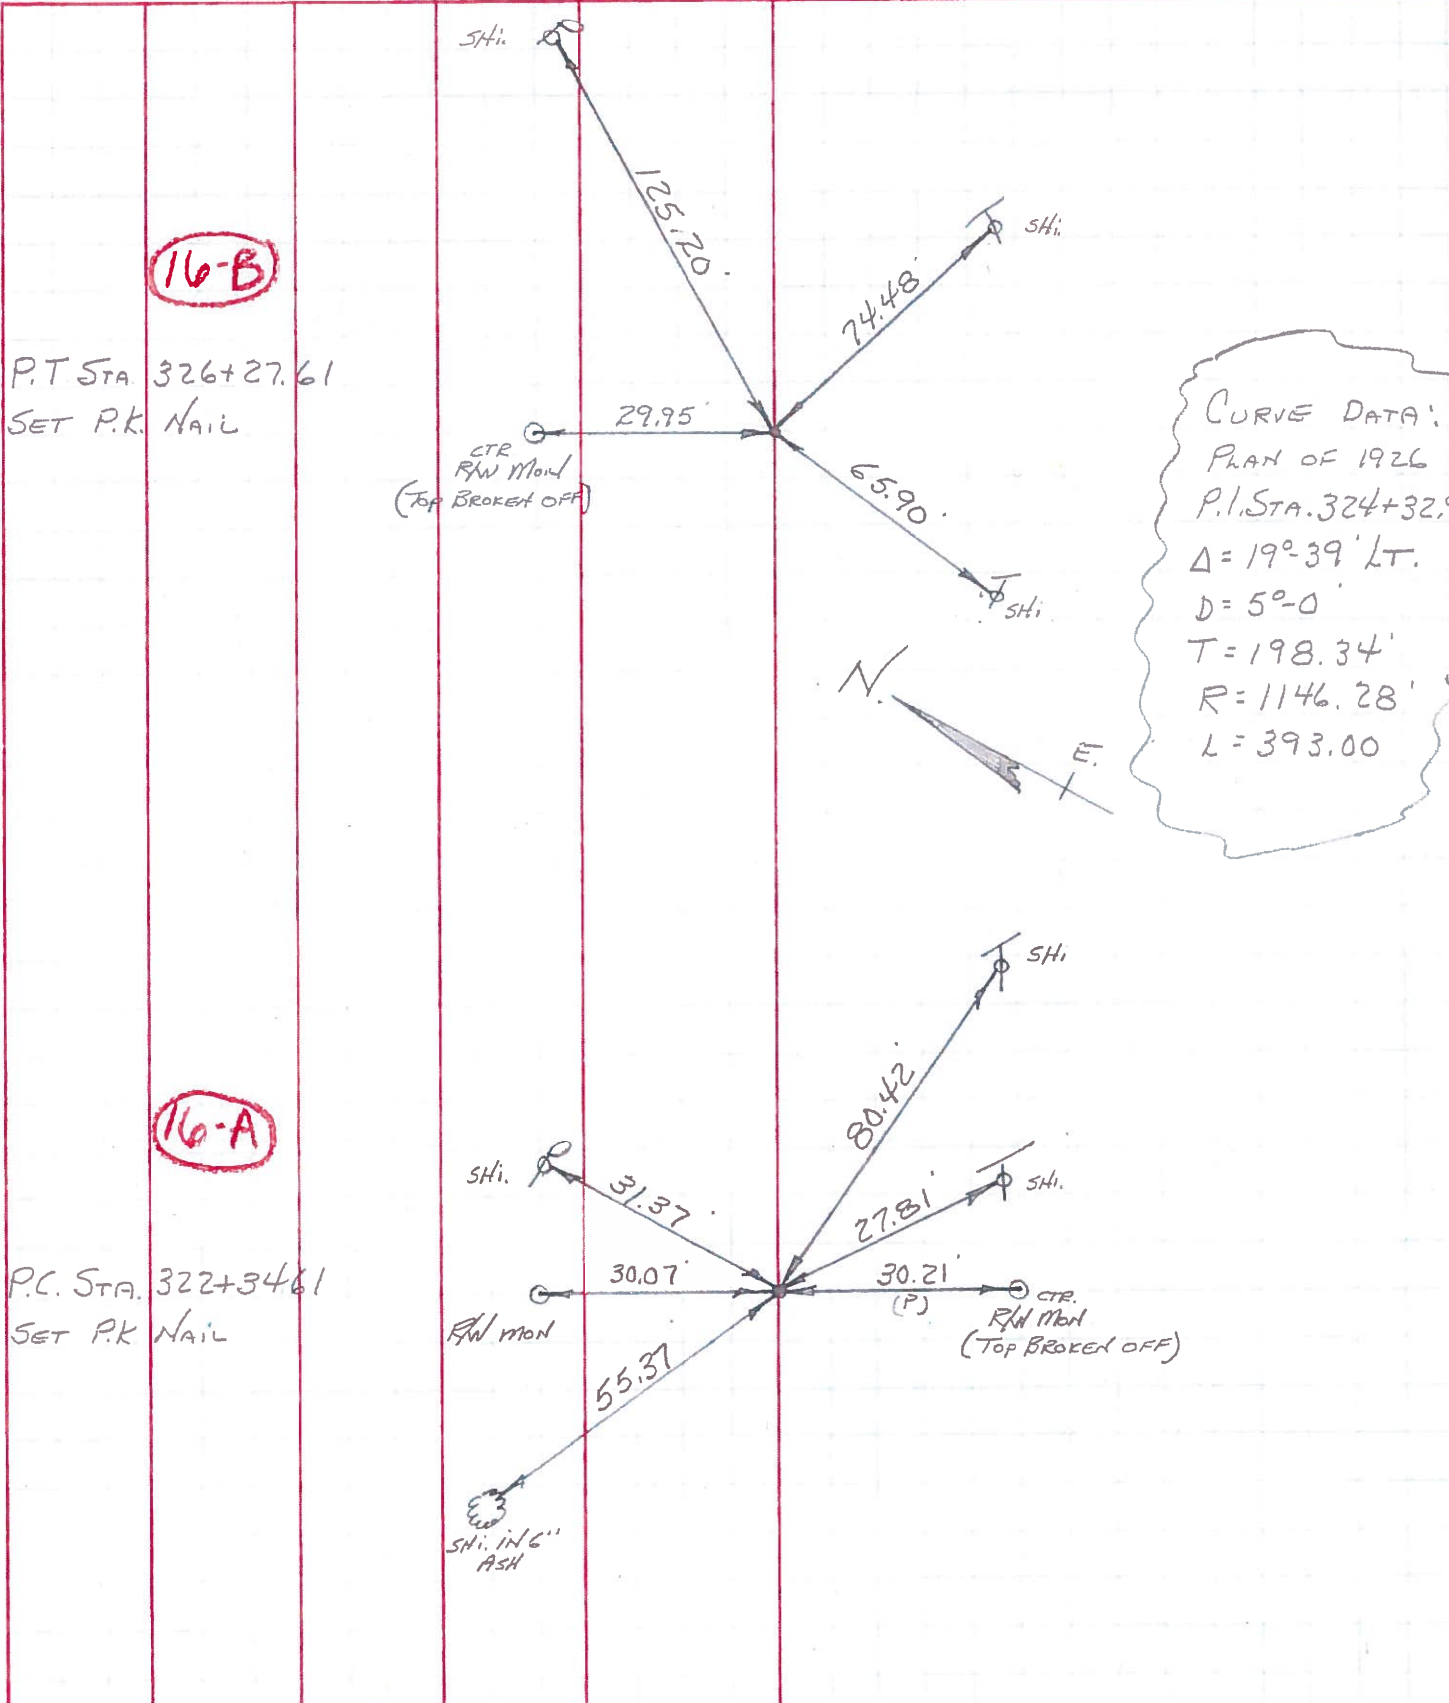 SHi.
125.20'
16-B
SHi.
74.48'
P.T STA. 326+27.61
SET P.K. NAIL
29.95'
CTR
R/W MON
(TOP BROKEN OFF)
65.90'
SHi.
CURVE DATA:
PLAN OF 1926
P.I. STA. 324+32.9
Δ = 19°-39' LT.
D = 5°-0'
T = 198.34'
R = 1146.28'
L = 393.00
N.
E.
SHi
80.42'
16-A
SHi.
31.37'
27.81'
SHi.
P.C. STA. 322+34.61
SET P.K NAIL
30.07'
R/W MON
30.21'
(P)
CTR.
R/W MON
(TOP BROKEN OFF)
55.37
SHi. IN 6"
ASH